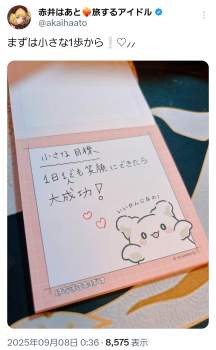 赤井はあと❤️‍🔥旅するアイドル
@akaihaato
まずは小さな1歩から❕♡⸝⸝
小さな目標、
1日1人でも笑顔にできたら
大成功!
いいかんじなの!
2025年09月08日 0:36 · 8,575 表示